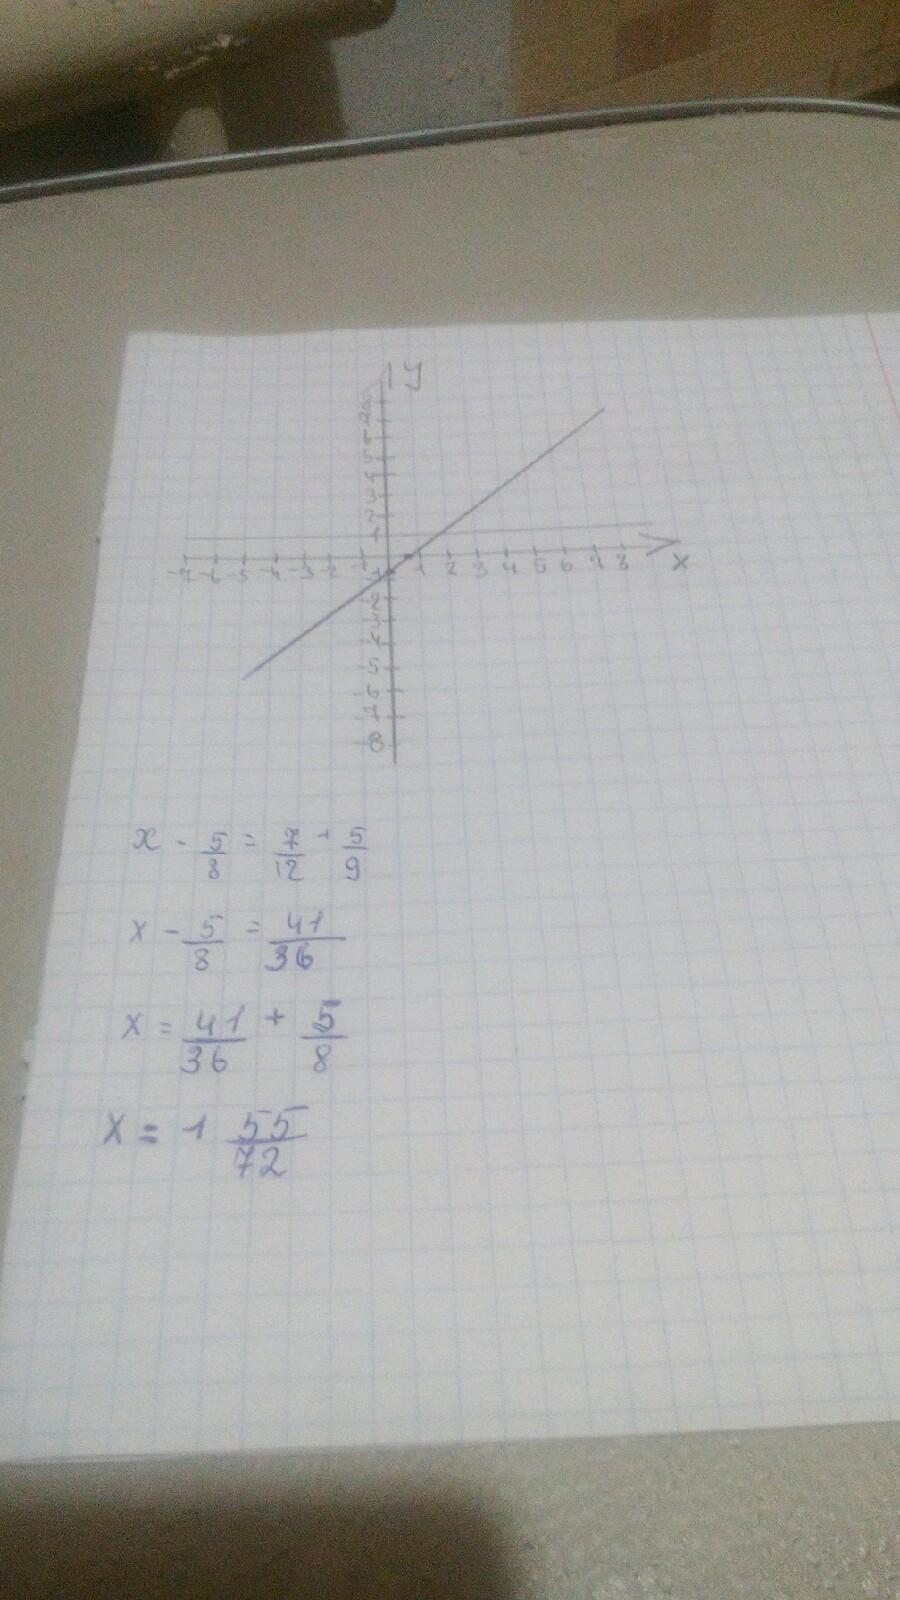 y
-7 -6 -5 -4 -3 -2 -1 1 2 3 4 5 6 7 8 x
5
4
3
2
1
-1
-2
-3
-4
-5
-6
-7
-8
x - 5/8 = 7/12 + 5/9
x - 5/8 = 41/36
x = 41/36 + 5/8
x = 1 55/72